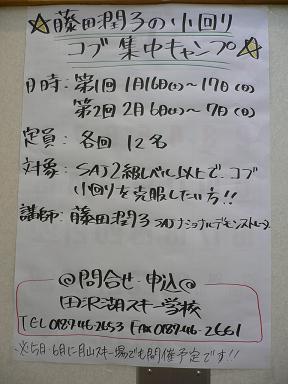 ☆藤田潤子の小回り
コブ集中キャンプ☆
日時:第1回 1月16日(土)〜17日(日)
第2回 2月6日(土)〜7日(日)
定員:各回 12名
対象:SAJ2級レベル以上で、コブ
小回りを克服したい方!!
講師:藤田潤子 SAJナショナルデモンストレーター
◎問合せ・申込◎
田沢湖スキー学校
TEL 0187-46-2653 FAX 0187-46-2661
※5月・6月に月山スキー場でも開催予定です!!